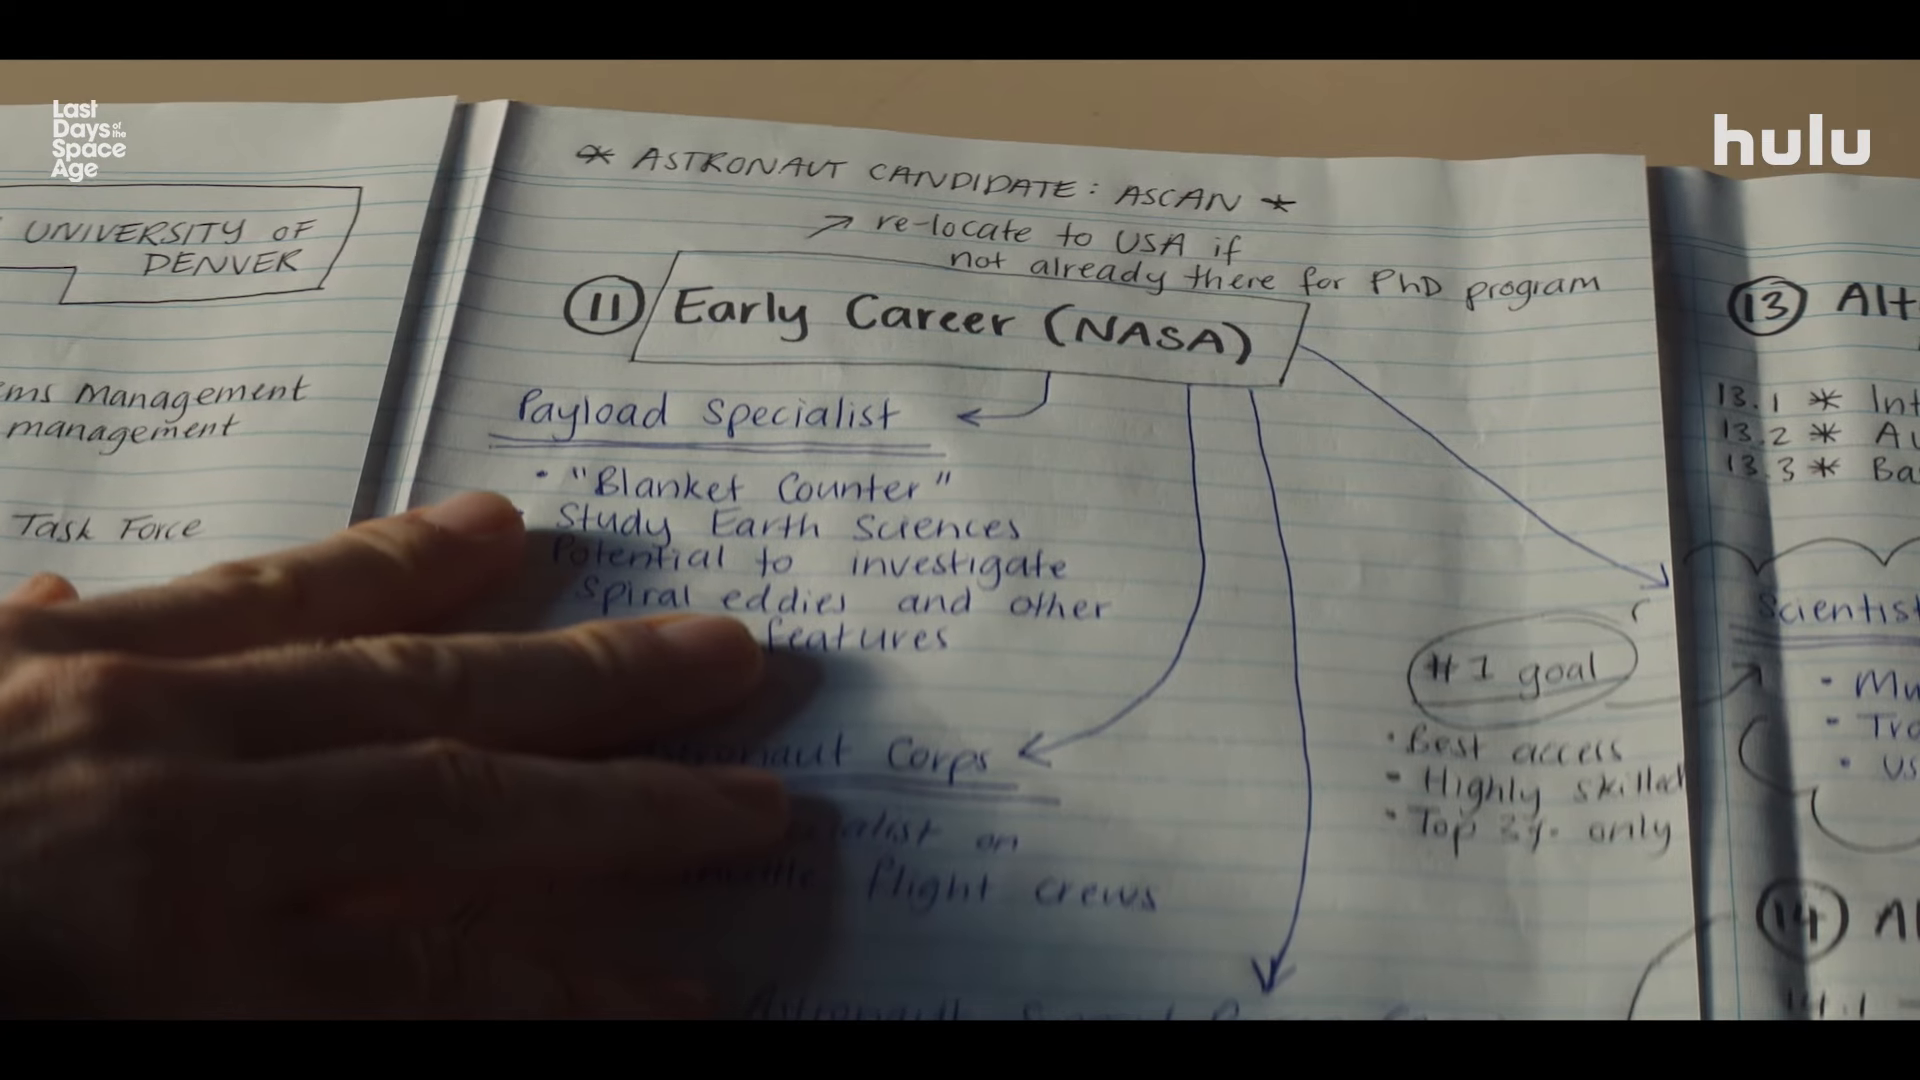 Last
Days of the
Space
Age
hulu
UNIVERSITY OF
DENVER
Management
management
Task Force
* ASTRONAUT CANDIDATE: ASCAN *
↗ re-locate to USA if
not already there for PhD program
11 Early Career (NASA)
Payload Specialist
• "Blanket Counter"
Study Earth Sciences
Potential to investigate
Spiral eddies and other
features
Corps
on
flight crews
#1 goal
• Best access
- Highly skilled
• Top 3% only
13
13.1 *
13.2 *
13.3 *
Scientist
14
14.1